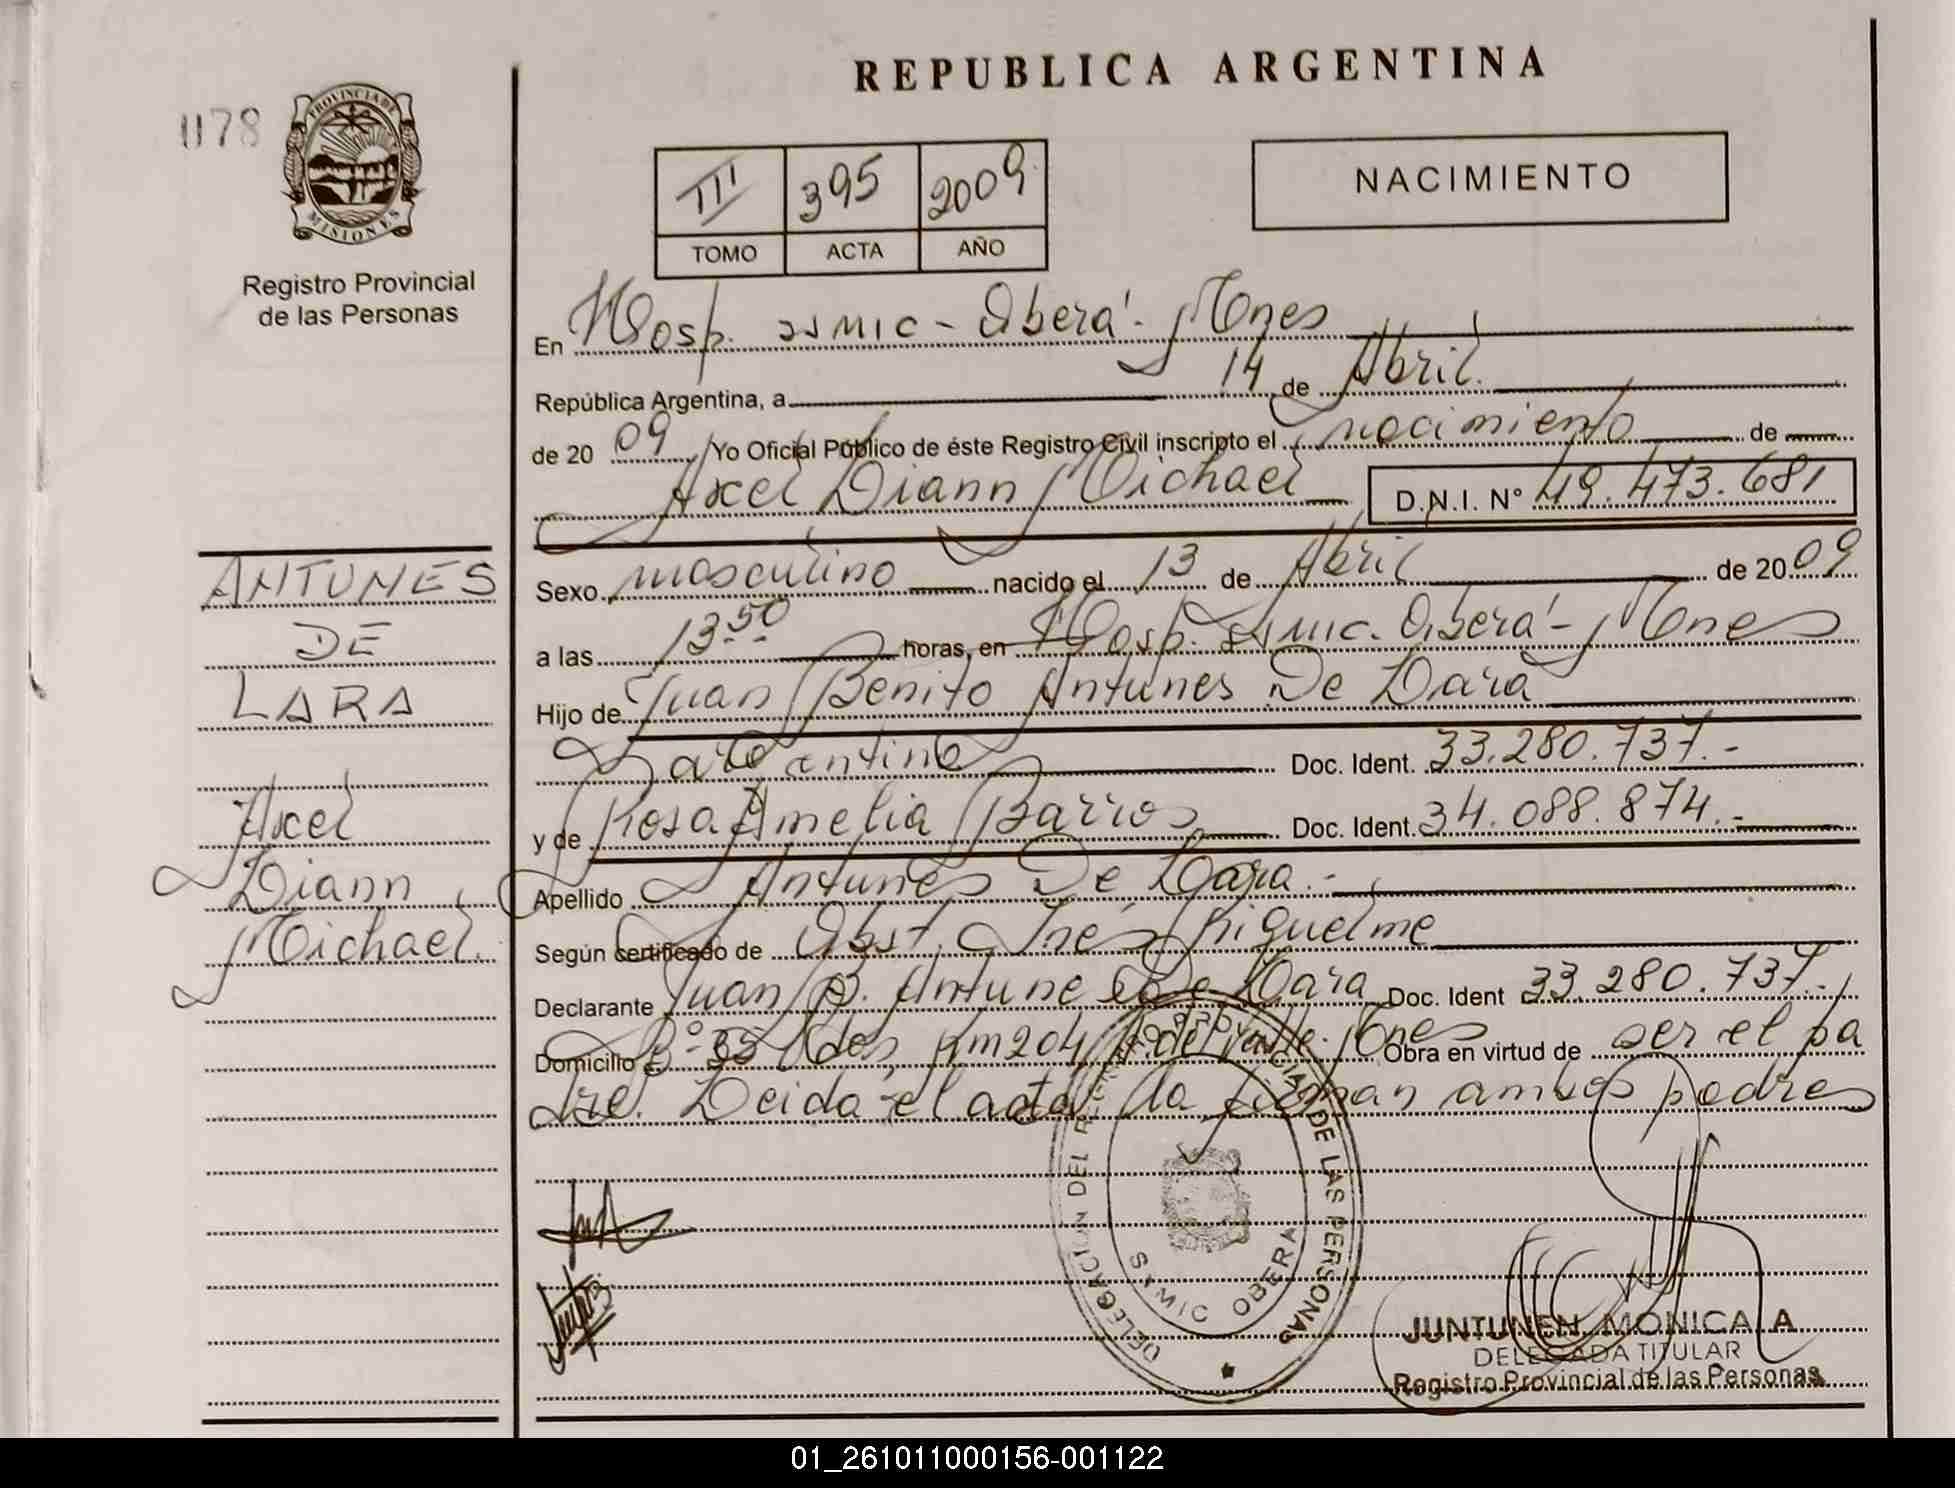 REPUBLICA ARGENTINA
1178
PROVINCIA DE
MISIONES
Registro Provincial
de las Personas
III 395 2009
TOMO ACTA AÑO
NACIMIENTO
En Hosp. SAMIC - Oberá - Mnes
República Argentina, a 14 de Abril.
de 20 09 Yo Oficial Público de éste Registro Civil inscripto el nacimiento de
Axel Diann Michael D.N.I. N° 49.473.681
Sexo masculino nacido el 13 de Abril de 20 09
a las 13.50 horas, en Hosp. SAMIC. Oberá - Mnes
Hijo de Juan Benito Antunes De Lara
Doc. Ident. 33.280.737.-
y de Rosa Amelia Barrios Doc. Ident. 34.088.874.-
Apellido Antunes De Lara.-
Según certificado de Obst. Inés Riquelme
Declarante Juan B. Antunes De Lara Doc. Ident 33.280.737.-
Domicilio Km 204 A. del Valle. Mnes Obra en virtud de ser el pa
dre. Leída el acta, la firman ambos padres
ANTUNES
DE
LARA
Axel
Diann
Michael.
DELEGACION DEL REGISTRO PROVINCIAL DE LAS PERSONAS
SAMIC OBERA
JUNTUNEN, MONICA A
DELEGADA TITULAR
Registro Provincial de las Personas
01_261011000156-001122